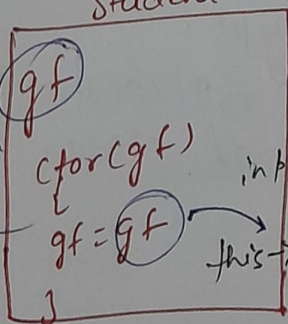 gf
Ctor(gf)
{
gf = gf
this
}